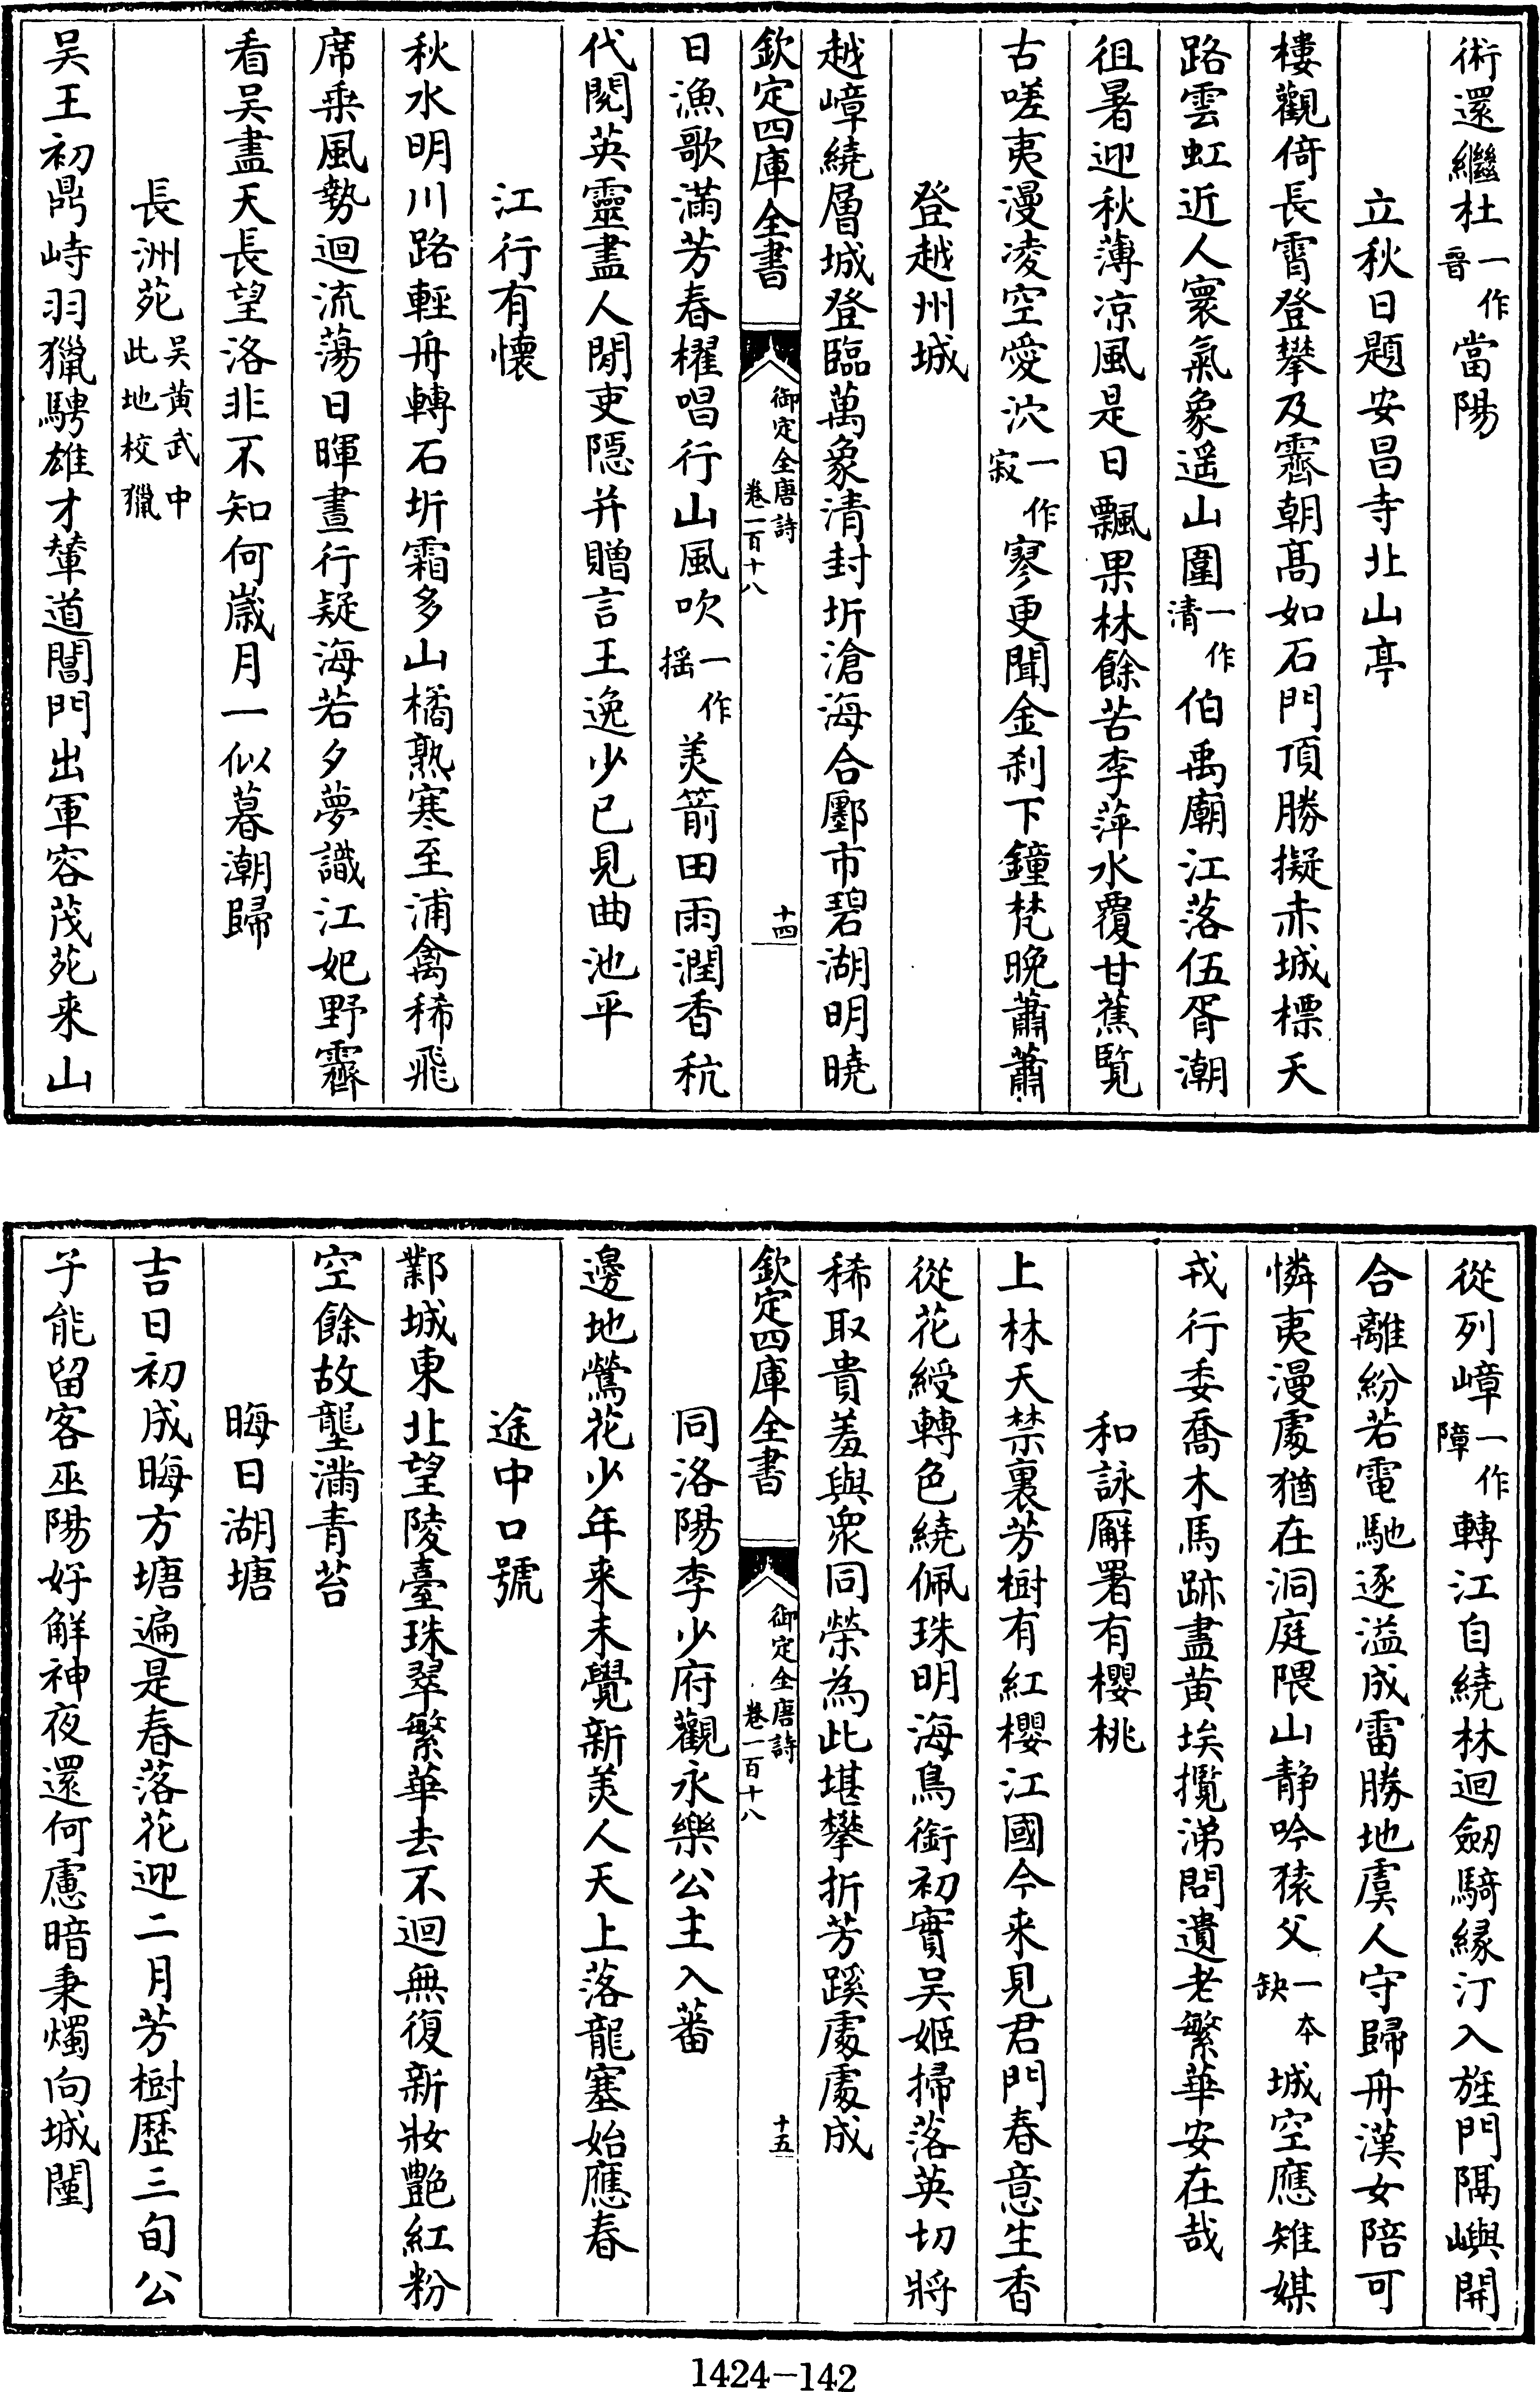 術還繼杜一作晉當陽
立秋日題安昌寺北山亭
樓觀倚長霄登攀及霽朝髙如石門頂勝擬赤城標天
路雲虹近人寰氣象遥山圍一作清伯禹廟江落伍胥潮
徂暑迎秋薄凉風是日飄果林餘苦李萍水覆甘蕉覽
古嗟夷漫凌空愛泬一作寂寥更聞金刹下鐘梵晚蕭蕭
登越州城
越嶂繞層城登臨萬象清封圻滄海合鄽市碧湖明曉
欽定四庫全書
御定全唐詩
卷一百十八
十四
日漁歌滿芳春櫂唱行山風吹一作揺美箭田雨潤香秔
代閱英靈盡人閒吏隱并贈言王逸少已見曲池平
江行有懐
秋水明川路輕舟轉石圻霜多山橘熟寒至浦禽稀飛
席乗風勢迴流蕩日暉晝行疑海若夕夢識江妃野霽
看吴盡天長望洛非不知何嵗月一似暮潮歸
長洲苑吴黄武中此地校獵
吴王初鼎峙羽獵騁雄才輦道閶門出軍容茂苑来山
從列嶂一作障轉江自繞林迴劒騎縁汀入旌門隔嶼開
合離紛若電馳逐溢成雷勝地虞人守歸舟漢女陪可
憐夷漫處猶在洞庭隈山静吟猿父一本缺城空應雉媒
戎行委喬木馬跡盡黄埃攬涕問遺老繁華安在哉
和詠廨署有櫻桃
上林天禁裏芳樹有紅櫻江國今来見君門春意生香
從花綬轉色繞佩珠明海鳥銜初實吴姬掃落英切將
稀取貴羞與衆同榮為此堪攀折芳蹊處處成
欽定四庫全書
御定全唐詩
卷一百十八
十五
同洛陽李少府觀永樂公主入蕃
邊地鶯花少年来未覺新美人天上落龍塞始應春
途中口號
鄴城東北望陵臺珠翠繁華去不迴無復新妝艶紅粉
空餘故壟滿青苔
晦日湖塘
吉日初成晦方塘遍是春落花迎二月芳樹歴三旬公
子能留客巫陽好解神夜還何慮暗秉燭向城闉
1424-142